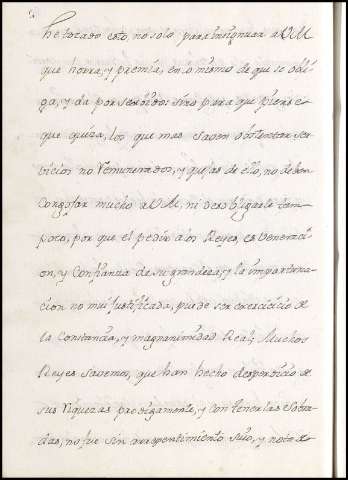 he tocado esto, no solo para insignuar a V.M.
que honra, y premia, en lo mismo de que se obli-
ga, y da por servido: sino para que piense
que quiza, los que mas saven obstentar ser-
vicios no Remunerados, y quejas de ello, no deben
congojar mucho a V.M, ni desobligarle tam-
poco, por que el pedir a los Reyes, es veneraci-
on, y confianza de su grandeza, y la importuna-
cion no mui justificada, puede ser exercicio de
la Constancia, y magnanimidad Real; Muchos
Reyes savemos, que han hecho desperdicio de
sus riquezas prodigamente, y con tenerlas sobra-
das, no fue sin arrepentimiento suio, y nota de